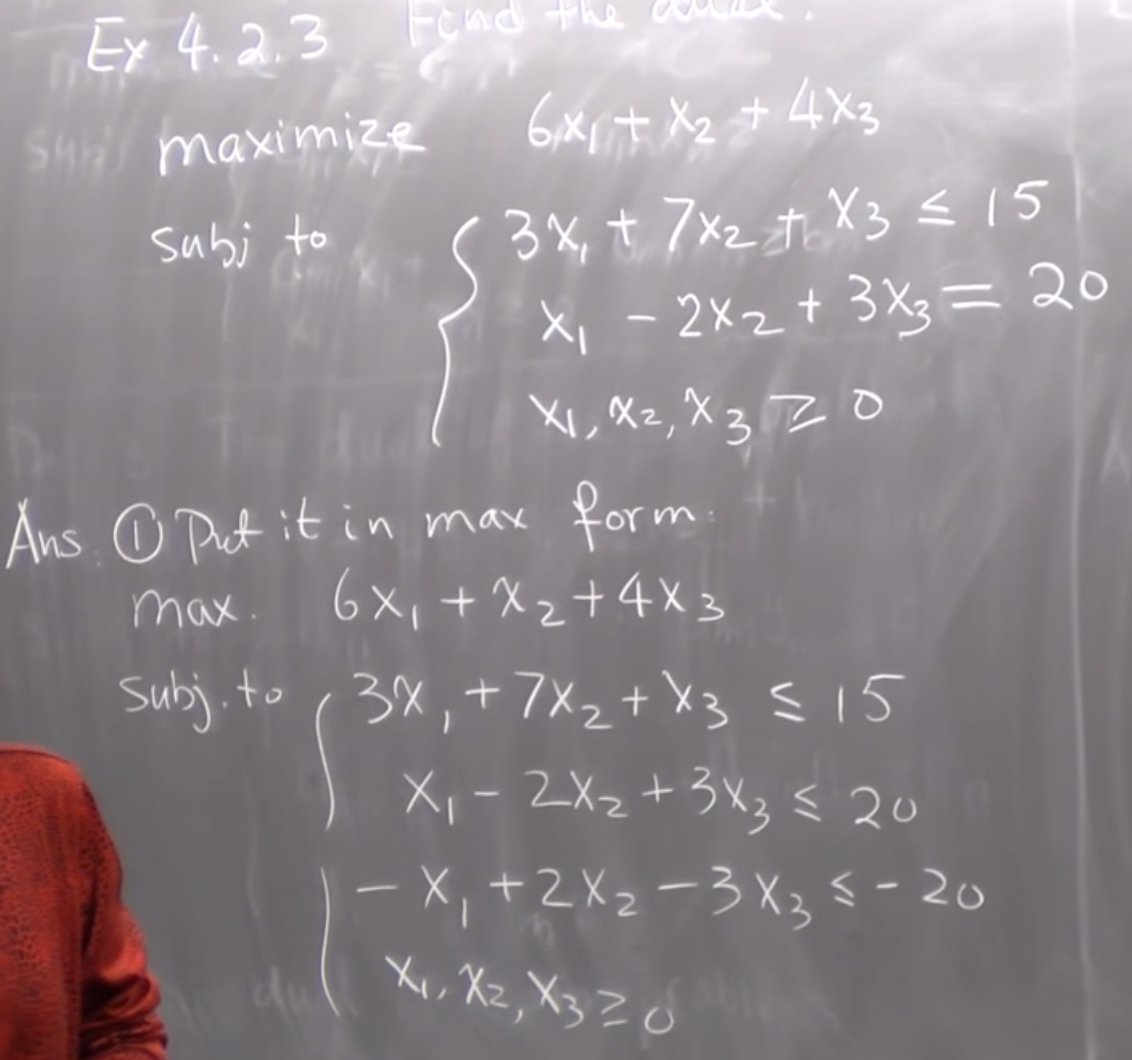 Ex 4.2.3 Find the dual.
maximize 6x₁ + x₂ + 4x₃
subj to { 3x₁ + 7x₂ + x₃ ≤ 15
x₁ - 2x₂ + 3x₃ = 20
x₁, x₂, x₃ ≥ 0
Ans. ① Put it in max form:
max. 6x₁ + x₂ + 4x₃
Subj. to { 3x₁ + 7x₂ + x₃ ≤ 15
x₁ - 2x₂ + 3x₃ ≤ 20
- x₁ + 2x₂ - 3x₃ ≤ - 20
x₁, x₂, x₃ ≥ 0